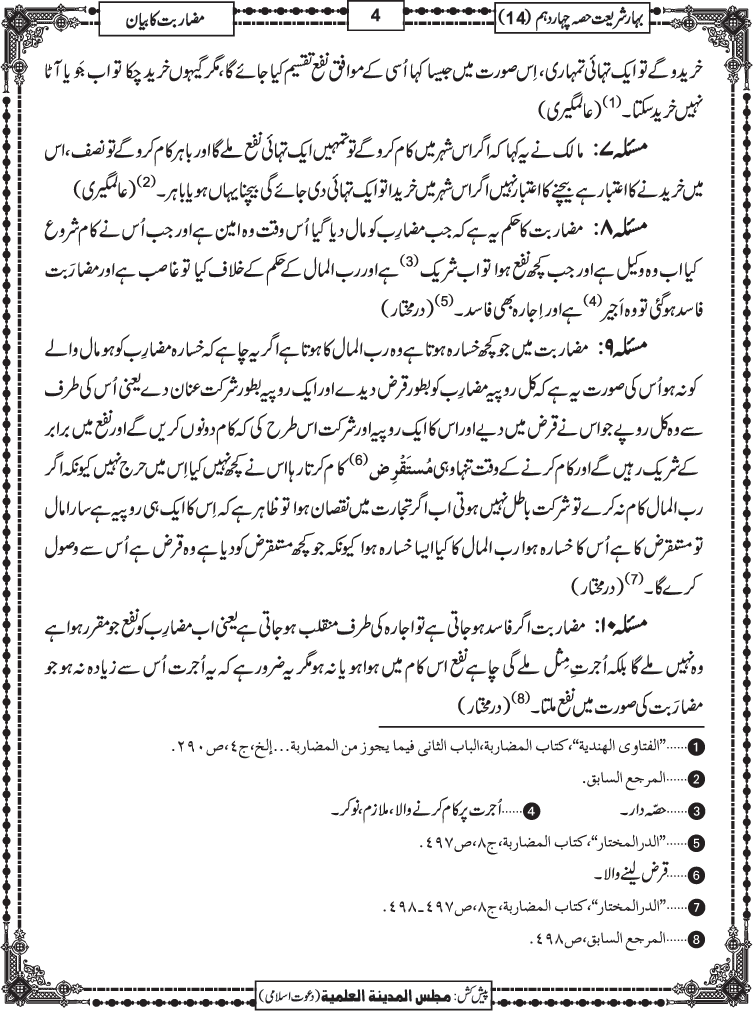 بہارِ شریعت حصہ چہاردہم (14)
4
مضاربت کا بیان
خریدو گے تو ایک تہائی تمہاری، اِس صورت میں جیسا کہا اُسی کے موافق نفع تقسیم کیا جائے گا، مگر گیہوں خرید چکا تو اب جَو یا آٹا
نہیں خرید سکتا۔(1) (عالمگیری)
مسئلہ ۷: مالک نے یہ کہا کہ اگر اس شہر میں کام کرو گے تو تمہیں ایک تہائی نفع ملے گا اور باہر کام کرو گے تو نصف، اس
میں خریدنے کا اعتبار ہے بیچنے کا اعتبار نہیں اگر اس شہر میں خریدا تو ایک تہائی دی جائے گی بیچنا یہاں ہو یا باہر۔(2) (عالمگیری)
مسئلہ ۸: مضاربت کا حکم یہ ہے کہ جب مضارِب کو مال دیا گیا اُس وقت وہ امین ہے اور جب اُس نے کام شروع
کیا اب وہ وکیل ہے اور جب کچھ نفع ہوا تو اب شریک (3) ہے اور رب المال کے حکم کے خلاف کیا تو غاصب ہے اور مضارَبت
فاسد ہوگئی تو وہ اَجیر (4) ہے اور اِجارہ بھی فاسد۔(5) (درمختار)
مسئلہ ۹: مضاربت میں جو کچھ خسارہ ہوتا ہے وہ رب المال کا ہوتا ہے اگر یہ چاہے کہ خسارہ مضارِب کو ہو مال والے
کو نہ ہو اُس کی صورت یہ ہے کہ کل روپیہ مضارِب کو بطور قرض دیدے اور ایک روپیہ بطور شرکت عنان دے یعنی اُس کی طرف
سے وہ کل روپے جو اس نے قرض میں دیے اور اس کا ایک روپیہ اور شرکت اس طرح کی کہ کام دونوں کریں گے اور نفع میں برابر
کے شریک رہیں گے اور کام کرنے کے وقت تنہا وہی مُستَقْرِض (6) کام کرتا رہا اس نے کچھ نہیں کیا اِس میں حرج نہیں کیونکہ اگر
رب المال کام نہ کرے تو شرکت باطل نہیں ہوتی اب اگر تجارت میں نقصان ہوا تو ظاہر ہے کہ اِس کا ایک ہی روپیہ ہے سارا مال
تو مستقرض کا ہے اُس کا خسارہ ہوا رب المال کا کیا ایسا خسارہ ہوا کیونکہ جو کچھ مستقرض کو دیا ہے وہ قرض ہے اُس سے وصول
کرے گا۔(7) (درمختار)
مسئلہ ۱۰: مضاربت اگر فاسد ہو جاتی ہے تو اجارہ کی طرف منقلب ہو جاتی ہے یعنی اب مضارِب کو نفع جو مقرر ہوا ہے
وہ نہیں ملے گا بلکہ اُجرتِ مِثل ملے گی چاہے نفع اس کام میں ہوا ہو یا نہ ہو مگر یہ ضرور ہے کہ یہ اُجرت اُس سے زیادہ نہ ہو جو
مضارَبت کی صورت میں نفع ملتا۔(8) (درمختار)
1 ......"الفتاوی الهندية"، كتاب المضاربة، الباب الثانی فيما يجوز من المضاربة...إلخ، ج٤، ص٢٩٠.
2 ......المرجع السابق.
3 ......حصّہ دار۔ 4 ......اُجرت پر کام کرنے والا، ملازم، نوکر۔
5 ......"الدرالمختار"، كتاب المضاربة، ج٨، ص٤٩٧.
6 ......قرض لینے والا۔
7 ......"الدرالمختار"، كتاب المضاربة، ج٨، ص٤٩٧۔٤٩٨.
8 ......المرجع السابق، ص٤٩٨.
پیش کش: مجلس المدينة العلمية (دعوت اسلامی)